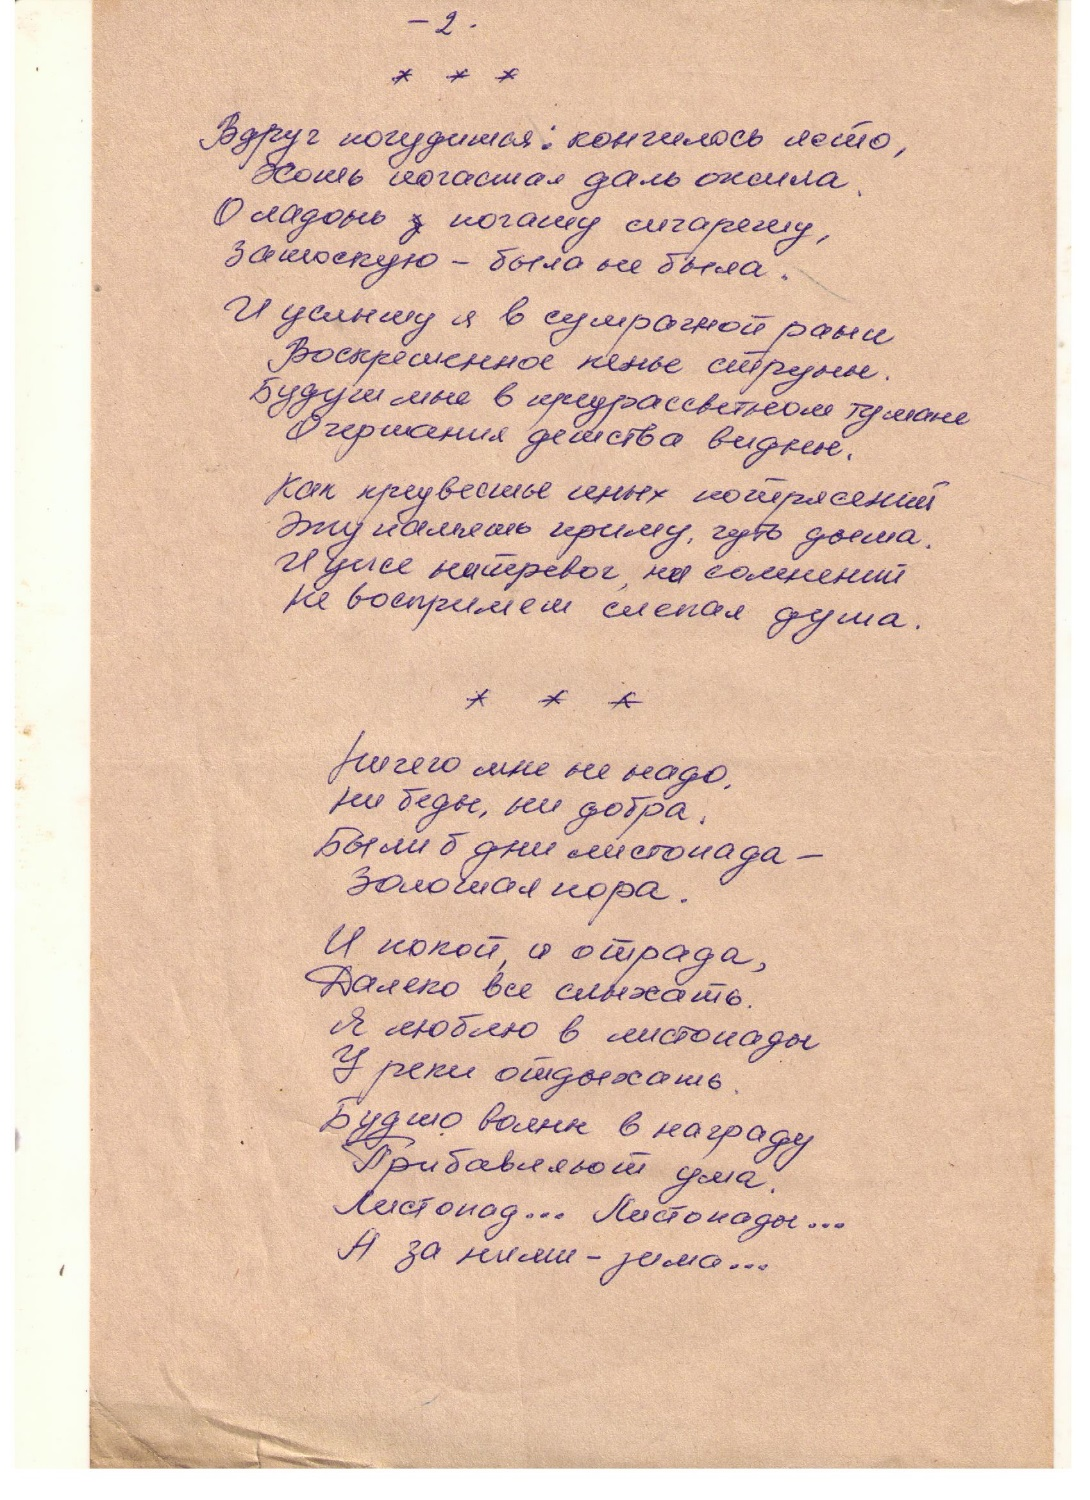 – 2 .
* * *
Вдруг почудится: кончилось лето,
Хоть погасшая даль ожила.
О ладонь погашу сигарету,
Затоскую – была не была.
И услышу я в сумрачной рани
Воскрешенное пенье струны.
Будут мне в предрассветном тумане
Очертания детства видны.
Как предвестье иных потрясений
Эту память приму, чуть дыша.
И уже ни тревог, ни сомнений
Не воспримет слепая душа.
* * *
Ничего мне не надо,
Ни беды, ни добра.
Были б дни листопада –
Золотая пора.
И покой, и отрада,
Далеко все слыхать.
Я люблю в листопады
У реки отдыхать.
Будто волны в награду
Прибавляют ума.
Листопад... Листопады...
А за ними – зима...